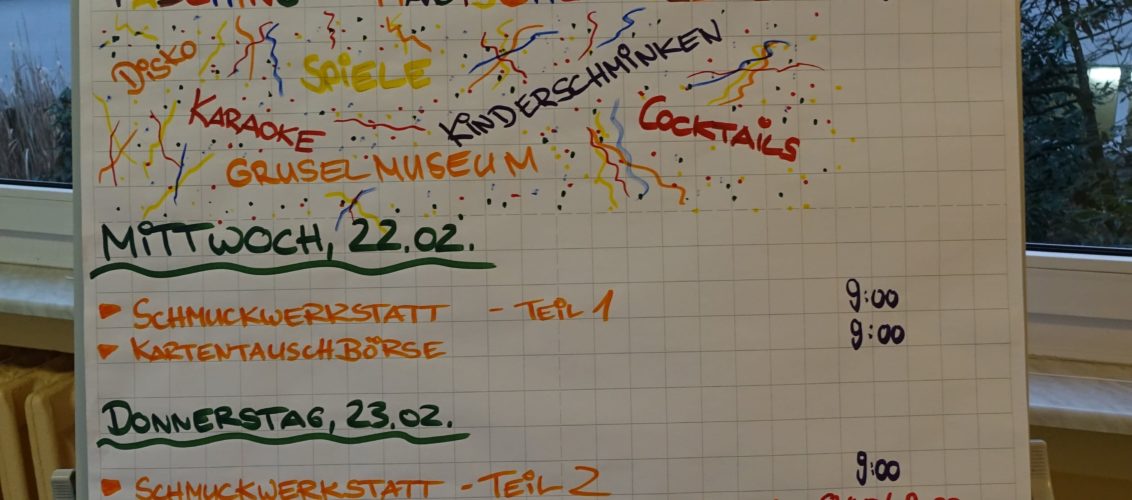 FASCHING
DISKO
SPIELE
KINDERSCHMINKEN
KARAOKE
COCKTAILS
GRUSELMUSEUM
MITTWOCH, 22.02.
SCHMUCKWERKSTATT - TEIL 1 9:00
KARTENTAUSCHBÖRSE 9:00
DONNERSTAG, 23.02.
SCHMUCKWERKSTATT - TEIL 2 9:00